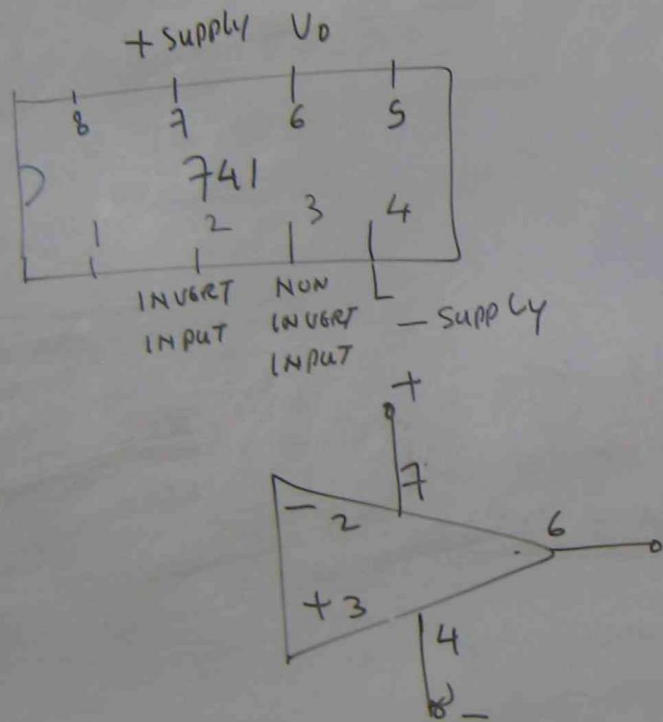 + SUPPLY V0
8 7 6 5
741
1 2 3 4
INVERT INPUT
NON INVERT INPUT
- SUPPLY
+
7
- 2
6
+ 3
4
-